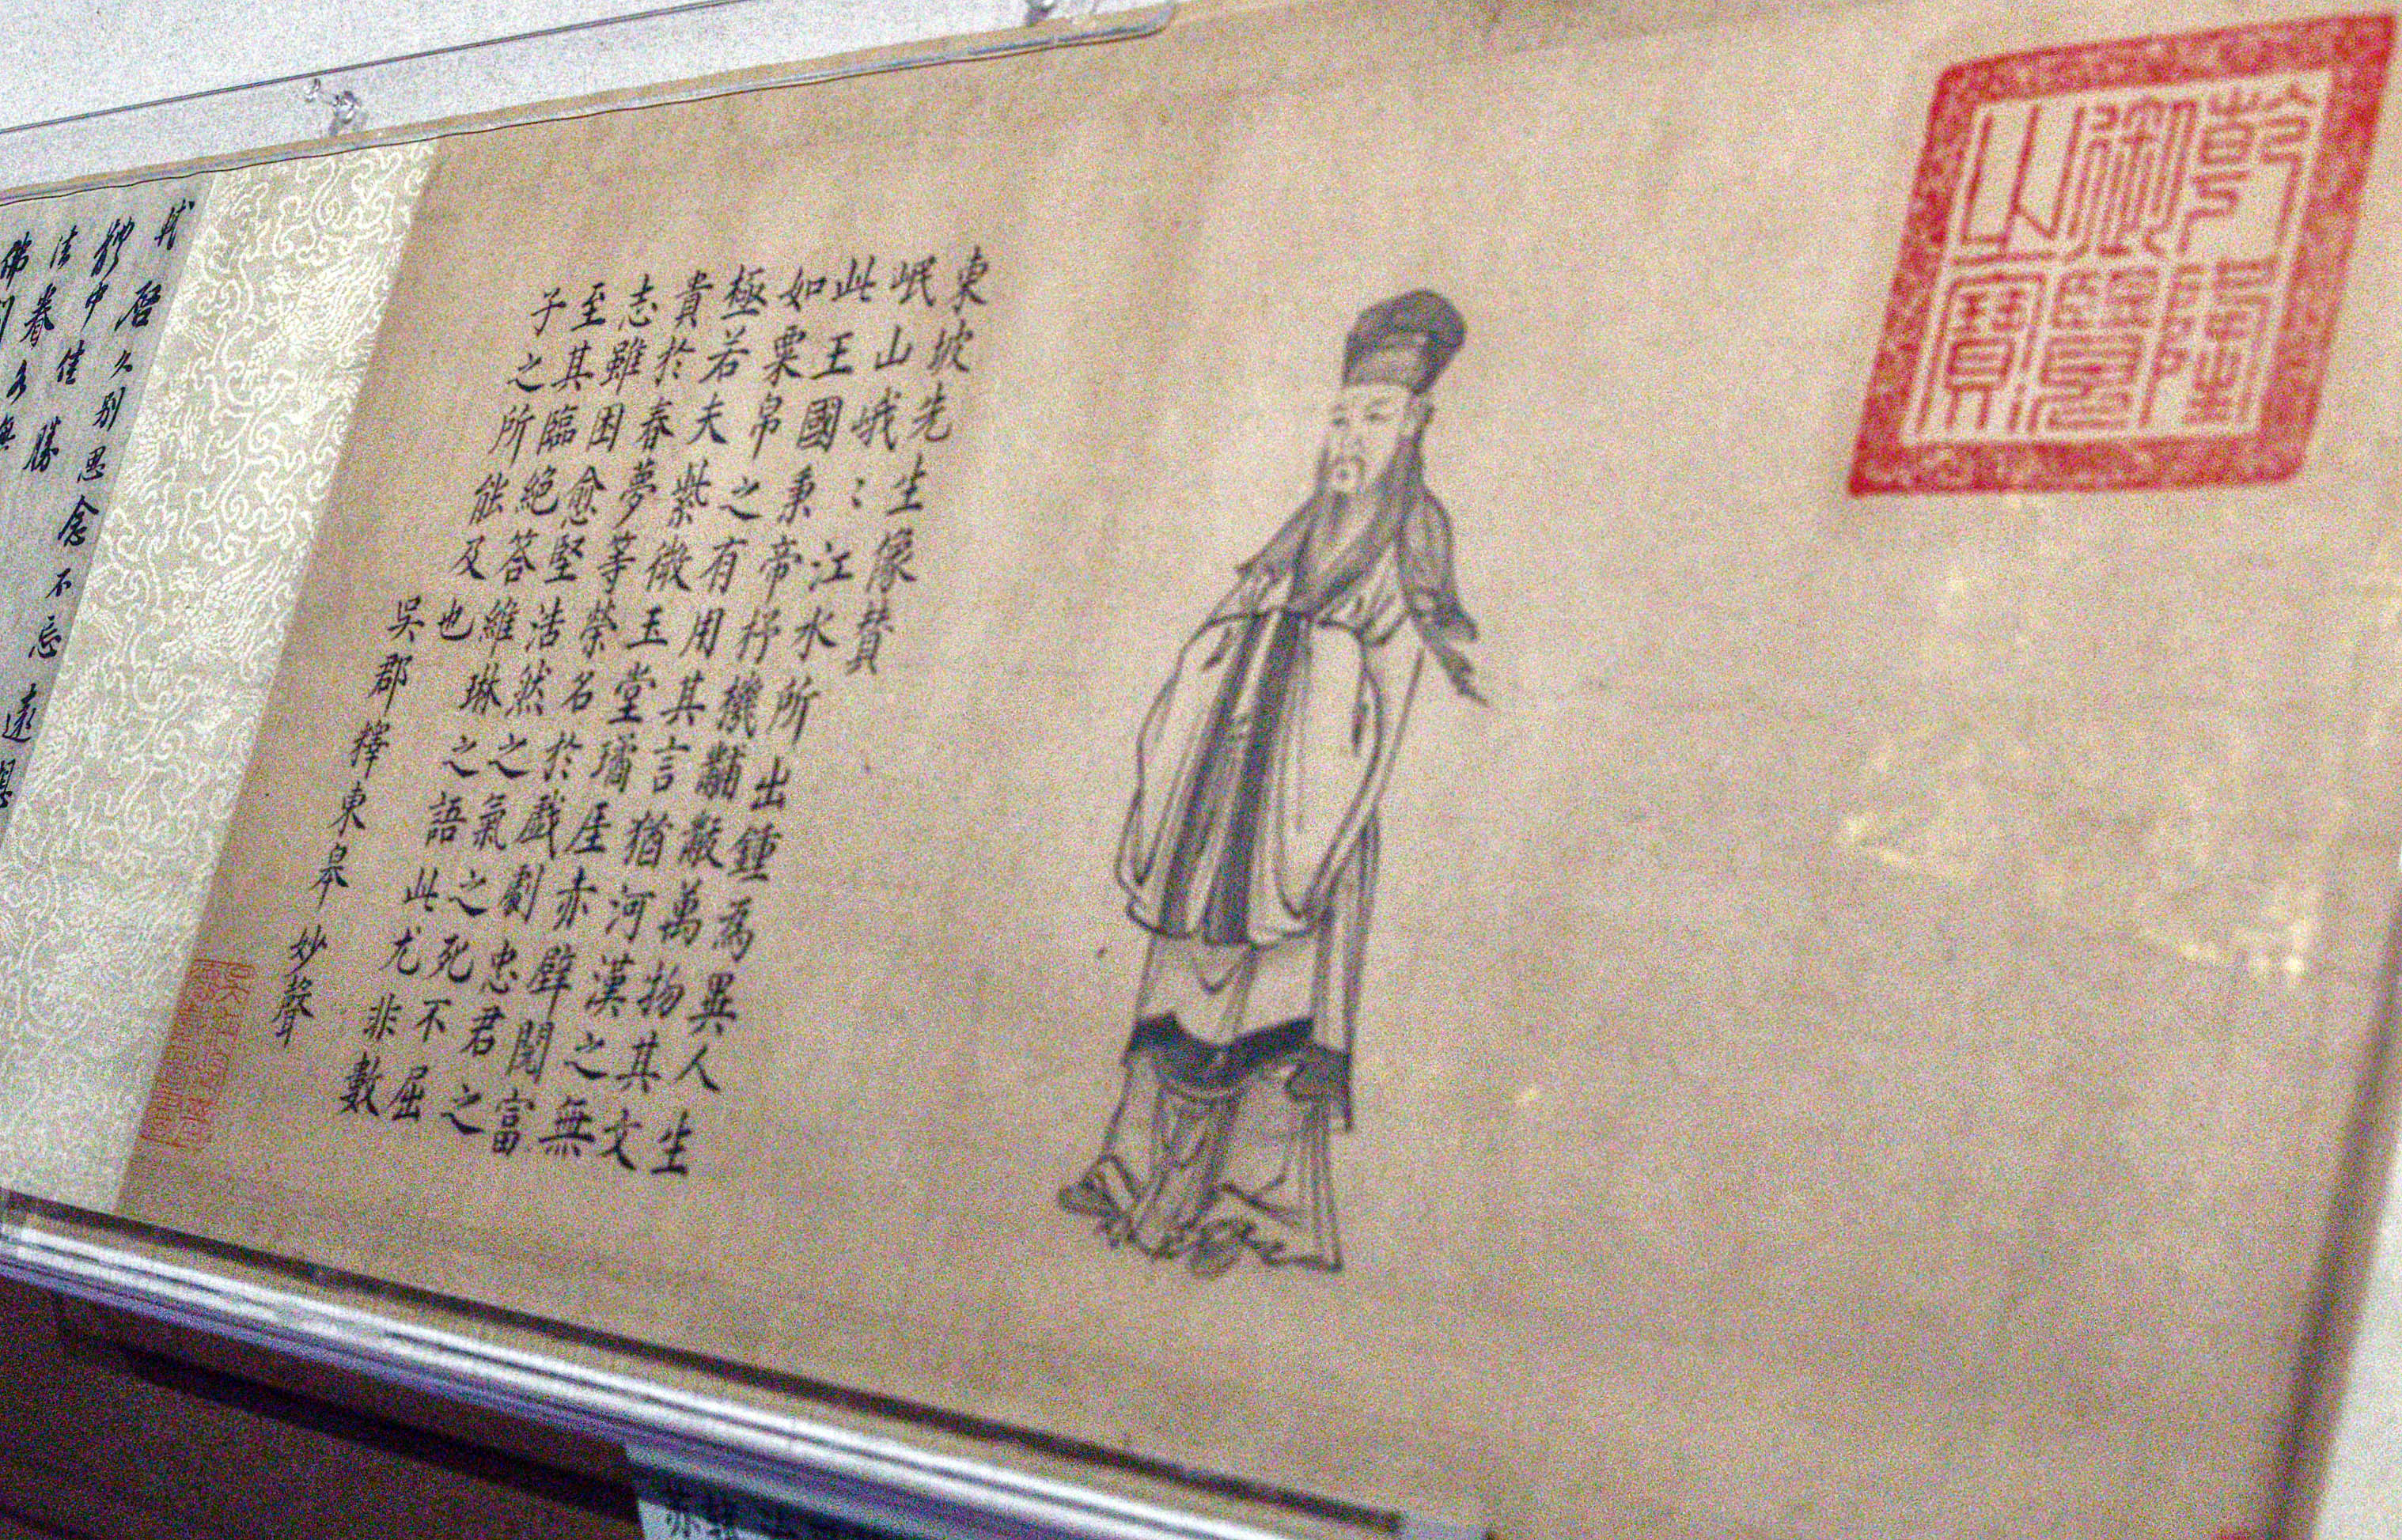 乾隆
御覽
之寶
東坡先生像贊
岷山峨〻江水所出鍾為異人生
此王國秉帝杼機黼黻萬物其文
如粟帛之有用其言猶河漢之無
極若夫紫微玉堂璚厓赤壁閱富
貴於春夢等榮名於戲劇忠君之
志雖困愈堅浩然之氣之死不屈
至其臨絕答維琳之語此尤非數
子之所能及也
吳郡釋東皋妙聲
軾啓久別思念不忘遠想
體中佳勝
法眷各無
佛印
苏轼